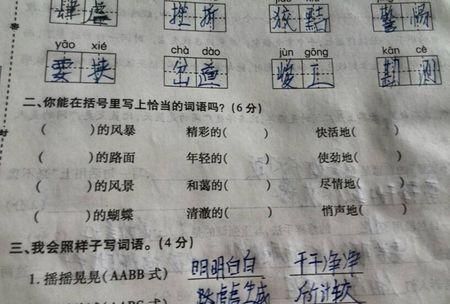 肆虐 挫折 狡黠
yāo xié chà dào jùn gōng kān cè
要挟 岔道 竣工 勘测
二、你能在括号里写上恰当的词语吗？(6分)
( )的风暴 精彩的( ) 快活地( )
( )的路面 年轻的( ) 使劲地( )
( )的风景 和蔼的( ) 尽情地( )
( )的蝴蝶 清澈的( ) 悄声地( )
三、我会照样子写词语。(4分)
1. 摇摇晃晃(AABB 式) 明明白白 干干净净